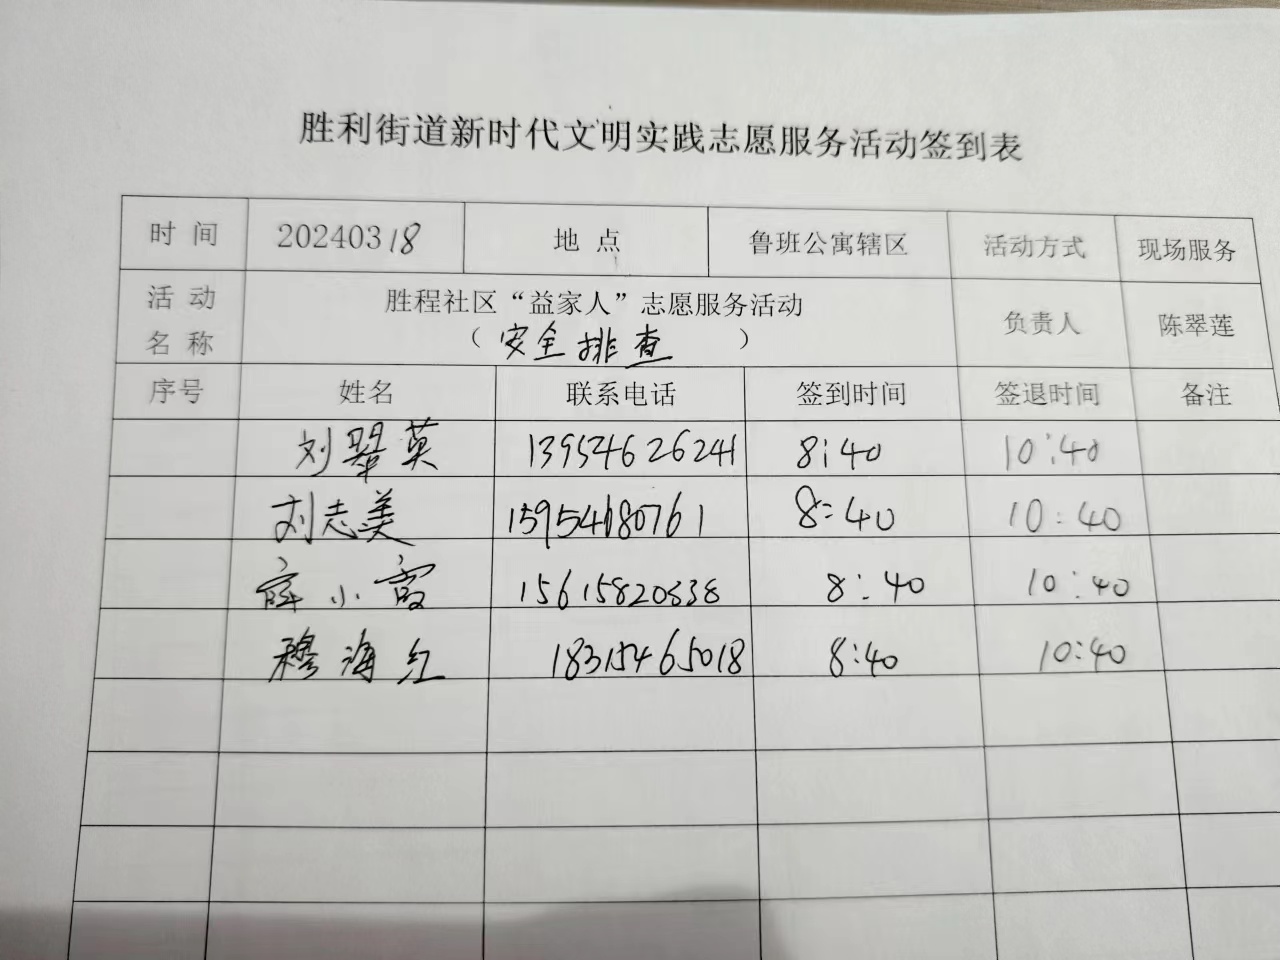 胜利街道新时代文明实践志愿服务活动签到表
时 间 20240318 地 点 鲁班公寓辖区 活动方式 现场服务
活 动 名 称 胜程社区“益家人”志愿服务活动 负责人 陈翠莲
（安全排查）
序号 姓名 联系电话 签到时间 签退时间 备注
刘翠英 13954626241 8:40 10:40
刘志美 15954680761 8:40 10:40
薛小霞 15615820838 8:40 10:40
穆海红 18315465018 8:40 10:40